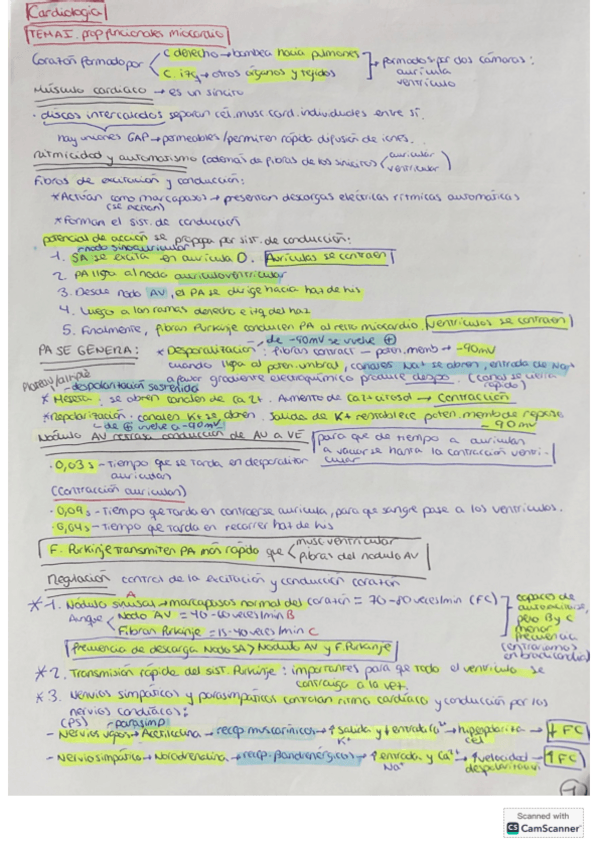 Cardiología
TEMA 1. prop funcionales miocardio
Corazón formado por C derecho → bombea hacia pulmones formados por dos cámaras:
C. izq → otros órganos y tejidos aurícula
ventrículo
Músculo cardíaco → es un sincitio
· discos intercalados separan cél. musc card. individuales entre sí.
hay uniones GAP → permeables/permiten rápida difusión de iones.
ritmicidad y automatismo (además de fibras de los sincitios auricular
ventricular)
Fibras de excitación y conducción:
* Actúan como marcapasos → presentan descargas eléctricas rítmicas automáticas
* Forman el sist. de conducción
potencial de acción se propaga por sist. de conducción:
nodo sinoauricular
1. SA se excita en aurícula D. Aurículas se contraen
2. PA llega al nodo auriculoventricular
3. Desde nodo AV, el PA se dirige hacia haz de his
4. Luego a las ramas derecha e izq del haz
5. Finalmente, fibras Purkinje conducen PA al resto miocardio. Ventrículos se contraen
de -90mV se vuelve ⊕
PA SE GENERA: * Despolarización: fibras contract - poten. memb → -90mV
cuando llega al poten. umbral, canales Na+ se abren, entrada de Na+
a favor gradiente electroquímico produce despo. (canal se cierra
rápido)
- despolarización sostenida
* Meseta: se abren canales de Ca2+. Aumento de Ca2+ citosol → contracción
* repolarización: canales K+ se abren. Salida de K+ restablece poten. memb de reposo
de ⊕ vuelve a -90mV -90mV
Nódulo AV retrasa conducción de AV a VE para que de tiempo a aurículas
a vaciarse hasta la contracción ventri-
cular
· 0,03s - Tiempo que se tarda en despolarizar
aurículas
(contracción aurículas)
· 0,09s - Tiempo que tarda en contraerse aurícula, para que sangre pase a los ventrículos.
· 0,04s - Tiempo que tarda en recorrer haz de his
F. Purkinje transmiten PA más rápido que musc ventricular
fibras del nodulo AV
Regulación control de la excitación y conducción corazón
A
* 1. Nódulo sinusal → marcapasos normal del corazón = 70-80 veces/min (FC) capaces de
autoexcitarse,
Aunque Nodo AV = 40-60 veces/min B pero B y C
Fibras Purkinje = 15-40 veces/min C menor
frecuencia
(entraríamos
en bradicardia)
frecuencia de descarga Nodo SA > Nódulo AV y F. Purkinje
* 2. Transmisión rápida del sist. Purkinje: importantes para que todo el ventrículo se
contraiga a la vez.
* 3. Nervios simpáticos y parasimpáticos controlan ritmo cardíaco y conducción por los
nervios cardíacos:
(PS) parasimp
- Nervios vagos → Acetilcolina → recep. muscarínicos → ↑ salida y ↓ entrada Ca2+ → hiperpolariza → ↓ FC
K+ cél
- Nervio simpático → Noradrenalina → recep. → ↑ entrada y Ca2+ → ↑ velocidad → ↑ FC
Na+ despolarización
1
Scanned with
CS CamScanner